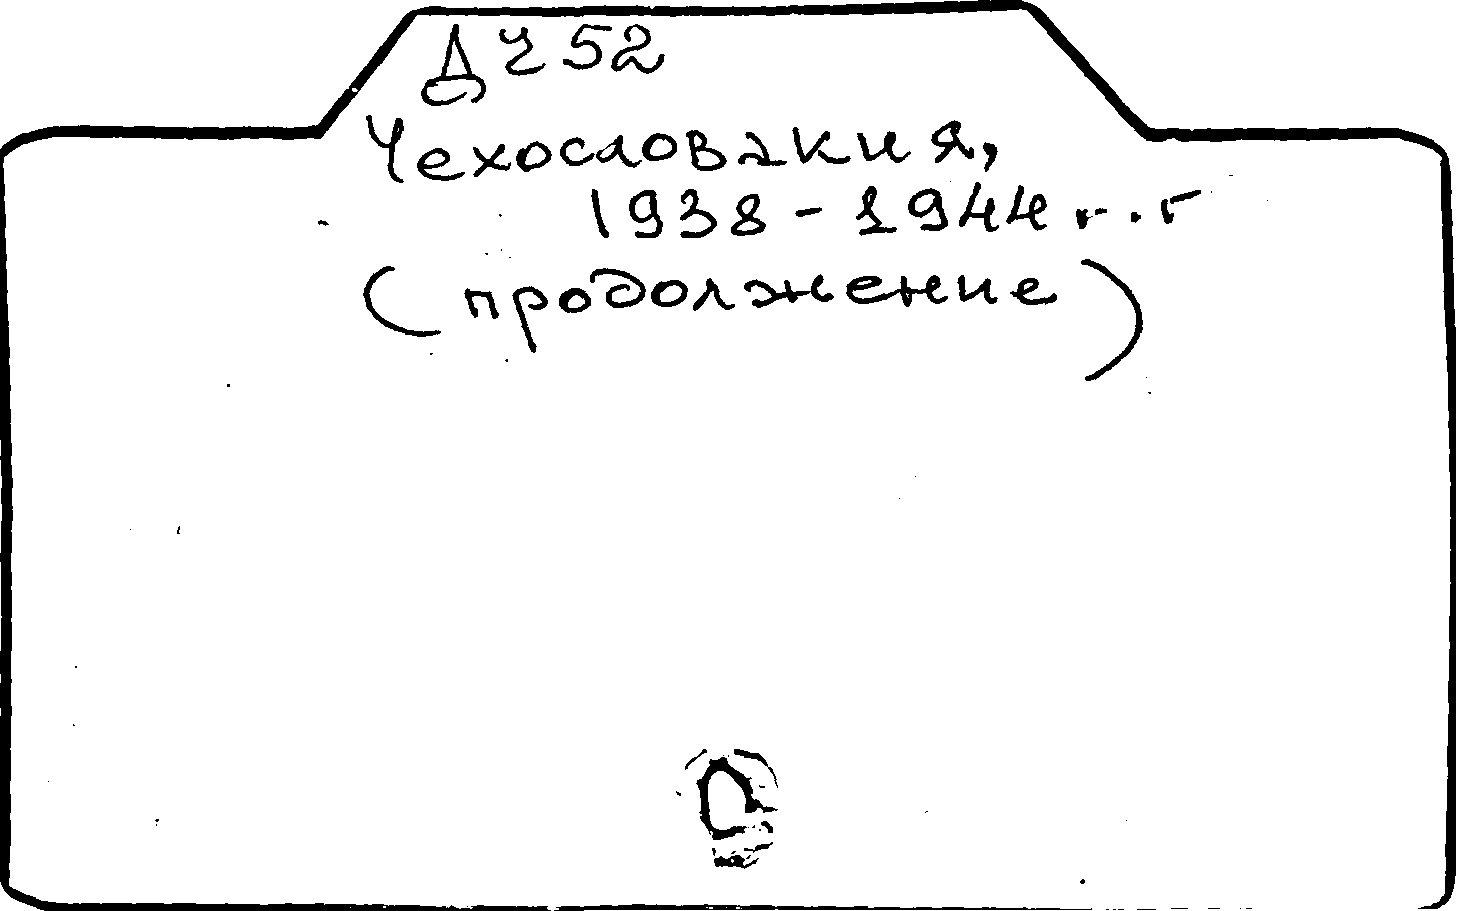 Д Ч 52
Чехословакия,
1938 - 1944 г.г
(продолжение)